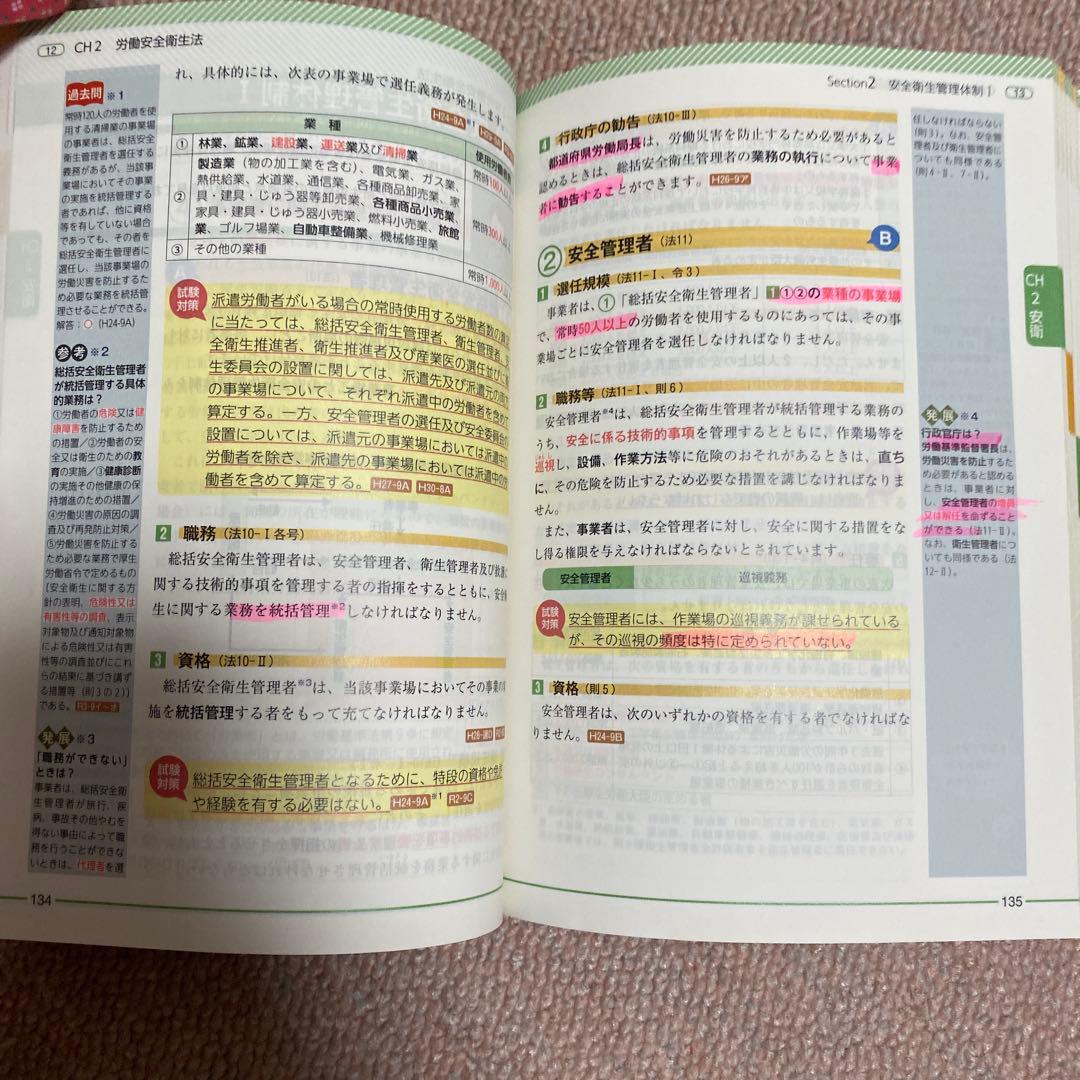 12 CH2 労働安全衛生法
過去問 ※1
常時120人の労働者を使
用する清掃業の事業場
の事業者は、総括安全
衛生管理者を選任する
義務があるが、当該事
業場においてその事業
の実施を統括管理する
者であれば、他に資格
等を有していない場合
であっても、その者を
総括安全衛生管理者に
選任し、当該事業場の
労働災害を防止するた
め必要な業務を統括管
理させることができる。
解答:○(H24-9A)
参考 ※2
総括安全衛生管理者
が統括管理する具体
的業務は?
①労働者の危険又は健
康障害を防止するため
の措置/②労働者の安
全又は衛生のための教
育の実施/③健康診断
の実施その他健康の保
持増進のための措置/
④労働災害の原因の調
査及び再発防止対策/
⑤労働災害を防止する
ため必要な業務で厚生
労働省令で定めるもの
〔安全衛生に関する方
針の表明、危険性又は
有害性等の調査、表示
対象物及び通知対象物
による危険性又は有害
性等の調査並びにこれ
らの結果に基づき講ず
る措置等(則3の2)〕
である。R3-9イ~オ
発展 ※3
「職務ができない」
ときは?
事業者は、総括安全衛
生管理者が旅行、疾
病、事故その他やむを
得ない事由によって職
務を行うことができな
いときは、代理者を選
れ、具体的には、次表の事業場で選任義務が発生します。
H24-9A ※1
業種 使用労働者
① 林業、鉱業、建設業、運送業及び清掃業 常時100人
② 製造業(物の加工業を含む)、電気業、ガス業、
熱供給業、水道業、通信業、各種商品卸売業、家
具・建具・じゅう器等卸売業、各種商品小売業、
家具・建具・じゅう器小売業、燃料小売業、旅館
業、ゴルフ場業、自動車整備業、機械修理業
常時300人
③ その他の業種 常時1,000人
試験対策
派遣労働者がいる場合の常時使用する労働者数の算
に当たっては、総括安全衛生管理者、衛生管理者、
全衛生推進者、衛生推進者及び産業医の選任並びに
生委員会の設置に関しては、派遣先及び派遣元の
の事業場について、それぞれ派遣中の労働者を含めて
算定する。一方、安全管理者の選任及び安全委員会の
設置については、派遣元の事業場においては派遣中の
労働者を除き、派遣先の事業場においては派遣中の
働者を含めて算定する。H27-9A H30-8A
2 職務(法10-Ⅰ各号)
総括安全衛生管理者は、安全管理者、衛生管理者及び救護に
関する技術的事項を管理する者の指揮をするとともに、安全
生に関する業務を統括管理※2しなければなりません。
3 資格(法10-Ⅱ)
総括安全衛生管理者※3は、当該事業場においてその事業の
施を統括管理する者をもって充てなければなりません。
試験対策
総括安全衛生管理者となるために、特段の資格や免
や経験を有する必要はない。H24-9A ※1 R2-9C
134
Section2 安全衛生管理体制Ⅰ 13
4 行政庁の勧告(法10-Ⅲ)
都道府県労働局長は、労働災害を防止するため必要があると
認めるときは、総括安全衛生管理者の業務の執行について事業
者に勧告することができます。H26-9ア
② 安全管理者(法11) B
1 選任規模(法11-Ⅰ、令3)
事業者は、①「総括安全衛生管理者」1①②の業種の事業場
で、常時50人以上の労働者を使用するものにあっては、その事
業場ごとに安全管理者を選任しなければなりません。
2 職務等(法11-Ⅰ、則6)
安全管理者※4は、総括安全衛生管理者が統括管理する業務の
うち、安全に係る技術的事項を管理するとともに、作業場等を
巡視し、設備、作業方法等に危険のおそれがあるときは、直ち
に、その危険を防止するため必要な措置を講じなければなりま
せん。
また、事業者は、安全管理者に対し、安全に関する措置をな
し得る権限を与えなければならないとされています。
安全管理者 巡視義務
試験対策
安全管理者には、作業場の巡視義務が課せられている
が、その巡視の頻度は特に定められていない。
3 資格(則5)
安全管理者は、次のいずれかの資格を有する者でなければな
りません。H24-9B
任しなければならない
(則3)。なお、安全管
理者及び衛生管理者に
ついても同様である
(則4-Ⅱ、7-Ⅱ)。
発展 ※4
行政官庁は?
労働基準監督署長は、
労働災害を防止するた
め必要があると認める
ときは、事業者に対
し、安全管理者の増員
又は解任を命ずること
ができる(法11-Ⅱ)。
なお、衛生管理者につ
いても同様である(法
12-Ⅱ)。
CH
2
安衛
135